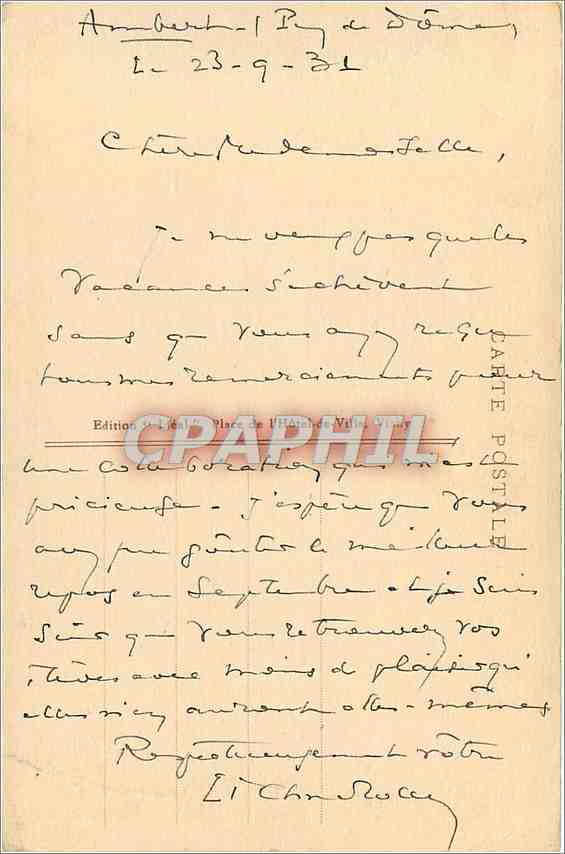 Ambert (Puy de Dôme)
Le 23-9-31
Chère Mademoiselle,
Je ne veux pas que les
vacances s'achèvent
sans que vous ayez reçu
tous mes remerciements pour
CARTE POSTALE
Edition "Idéal", Place de l'Hôtel-de-Ville,
CPAPHIL
une collaboration qui m'est
précieuse. J'espère que vous
avez pu goûter le meilleur
repos en Septembre et je suis
sûr que vous retrouverez vos
élèves avec moins de plaisir qu'
elles n'en auront elles-mêmes
Respectueusement vôtre